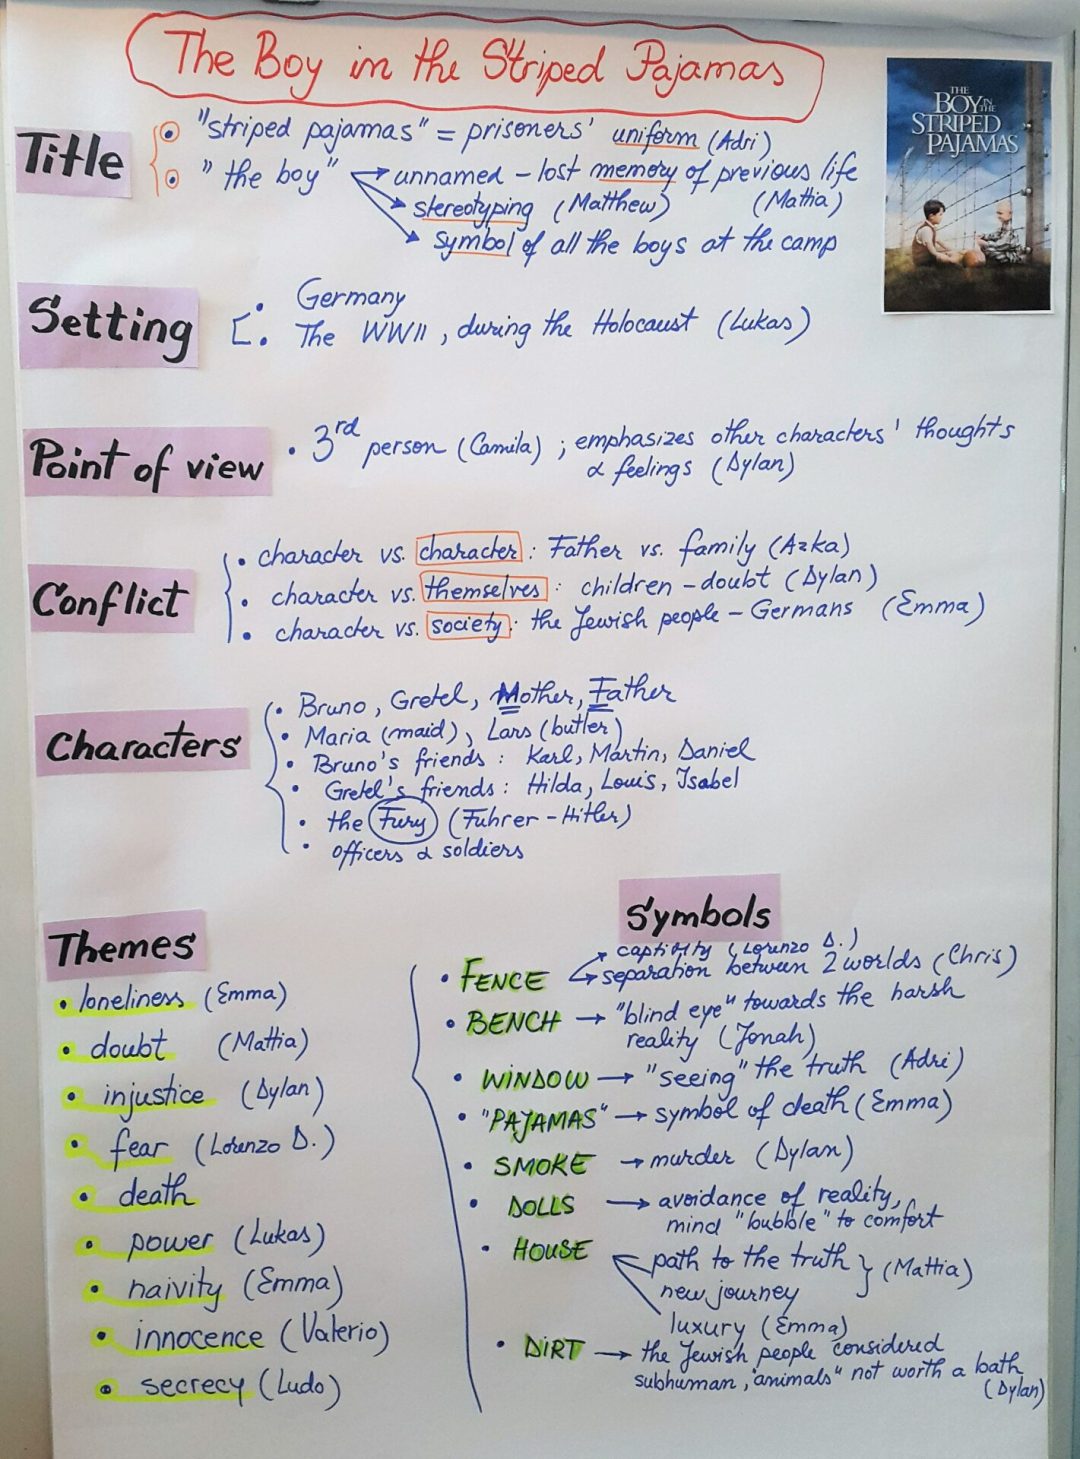 The Boy in the Striped Pajamas
THE
BOY IN THE
STRIPED
PAJAMAS
Title
• "striped pajamas" = prisoners' uniform (Adri)
• "the boy" → unnamed – lost memory of previous life
→ stereotyping (Matthew) (Mattia)
→ symbol of all the boys at the camp
Setting
• Germany
• The WWII, during the Holocaust (Lukas)
Point of view
• 3rd person (Camila) ; emphasizes other characters' thoughts
& feelings (Dylan)
Conflict
• character vs. character : Father vs. family (Azka)
• character vs. themselves : children – doubt (Dylan)
• character vs. society : the Jewish people – Germans (Emma)
Characters
• Bruno, Gretel, Mother, Father
• Maria (maid), Lars (butler)
• Bruno's friends : Karl, Martin, Daniel
• Gretel's friends : Hilda, Louis, Isabel
• the Fury (Fuhrer – Hitler)
• officers & soldiers
Themes
• loneliness (Emma)
• doubt (Mattia)
• injustice (Dylan)
• fear (Lorenzo D.)
• death
• power (Lukas)
• naivity (Emma)
• innocence (Valerio)
• secrecy (Ludo)
Symbols
→ captivity (Lorenzo D.)
• FENCE → separation between 2 worlds (Chris)
• BENCH → "blind eye" towards the harsh
reality (Jonah)
• WINDOW → "seeing" the truth (Adri)
• "PAJAMAS" → symbol of death (Emma)
• SMOKE → murder (Dylan)
• DOLLS → avoidance of reality,
mind "bubble" to comfort
• HOUSE path to the truth } (Mattia)
new journey
luxury (Emma)
• DIRT → the Jewish people considered
subhuman, "animals" not worth a bath
(Dylan)